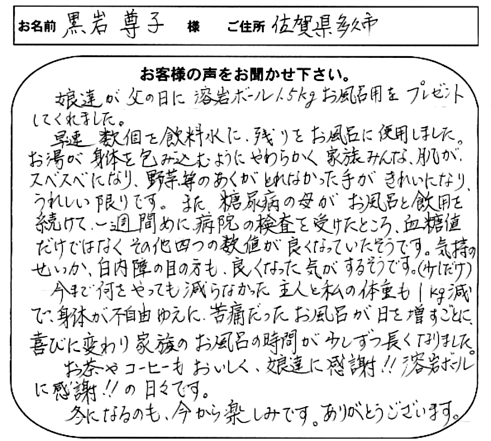 お名前 黒岩 尊子 様 ご住所 佐賀県多久市
お客様の声をお聞かせ下さい。
娘達が父の日に溶岩ボール1.5kgお風呂用をプレゼント
してくれました。
早速 数個を飲料水に、残りをお風呂に使用しました。
お湯が身体を包み込むようにやわらかく家族みんな、肌が、
スベスベになり、野菜等のあくがとれなかった手がきれいになり、
うれしい限りです。また 糖尿病の母が お風呂と飲用を
続けて、一週間めに病院の検査を受けたところ、血糖値
だけではなくその他四つの数値が良くなっていたそうです。気持の
せいか、白内障の目の方も、良くなった気がするそうです。(少しだけ)
今まで何をやっても減らなかった主人と私の体重も1kg減
で、身体が不自由ゆえに、苦痛だったお風呂が日を増すごとに、
喜びに変わり家族のお風呂の時間が少しずつ長くなりました。
お茶やコーヒーもおいしく、娘達に感謝!!溶岩ボール
に感謝!!の日々です。
冬になるのも、今から楽しみです。ありがとうございます。